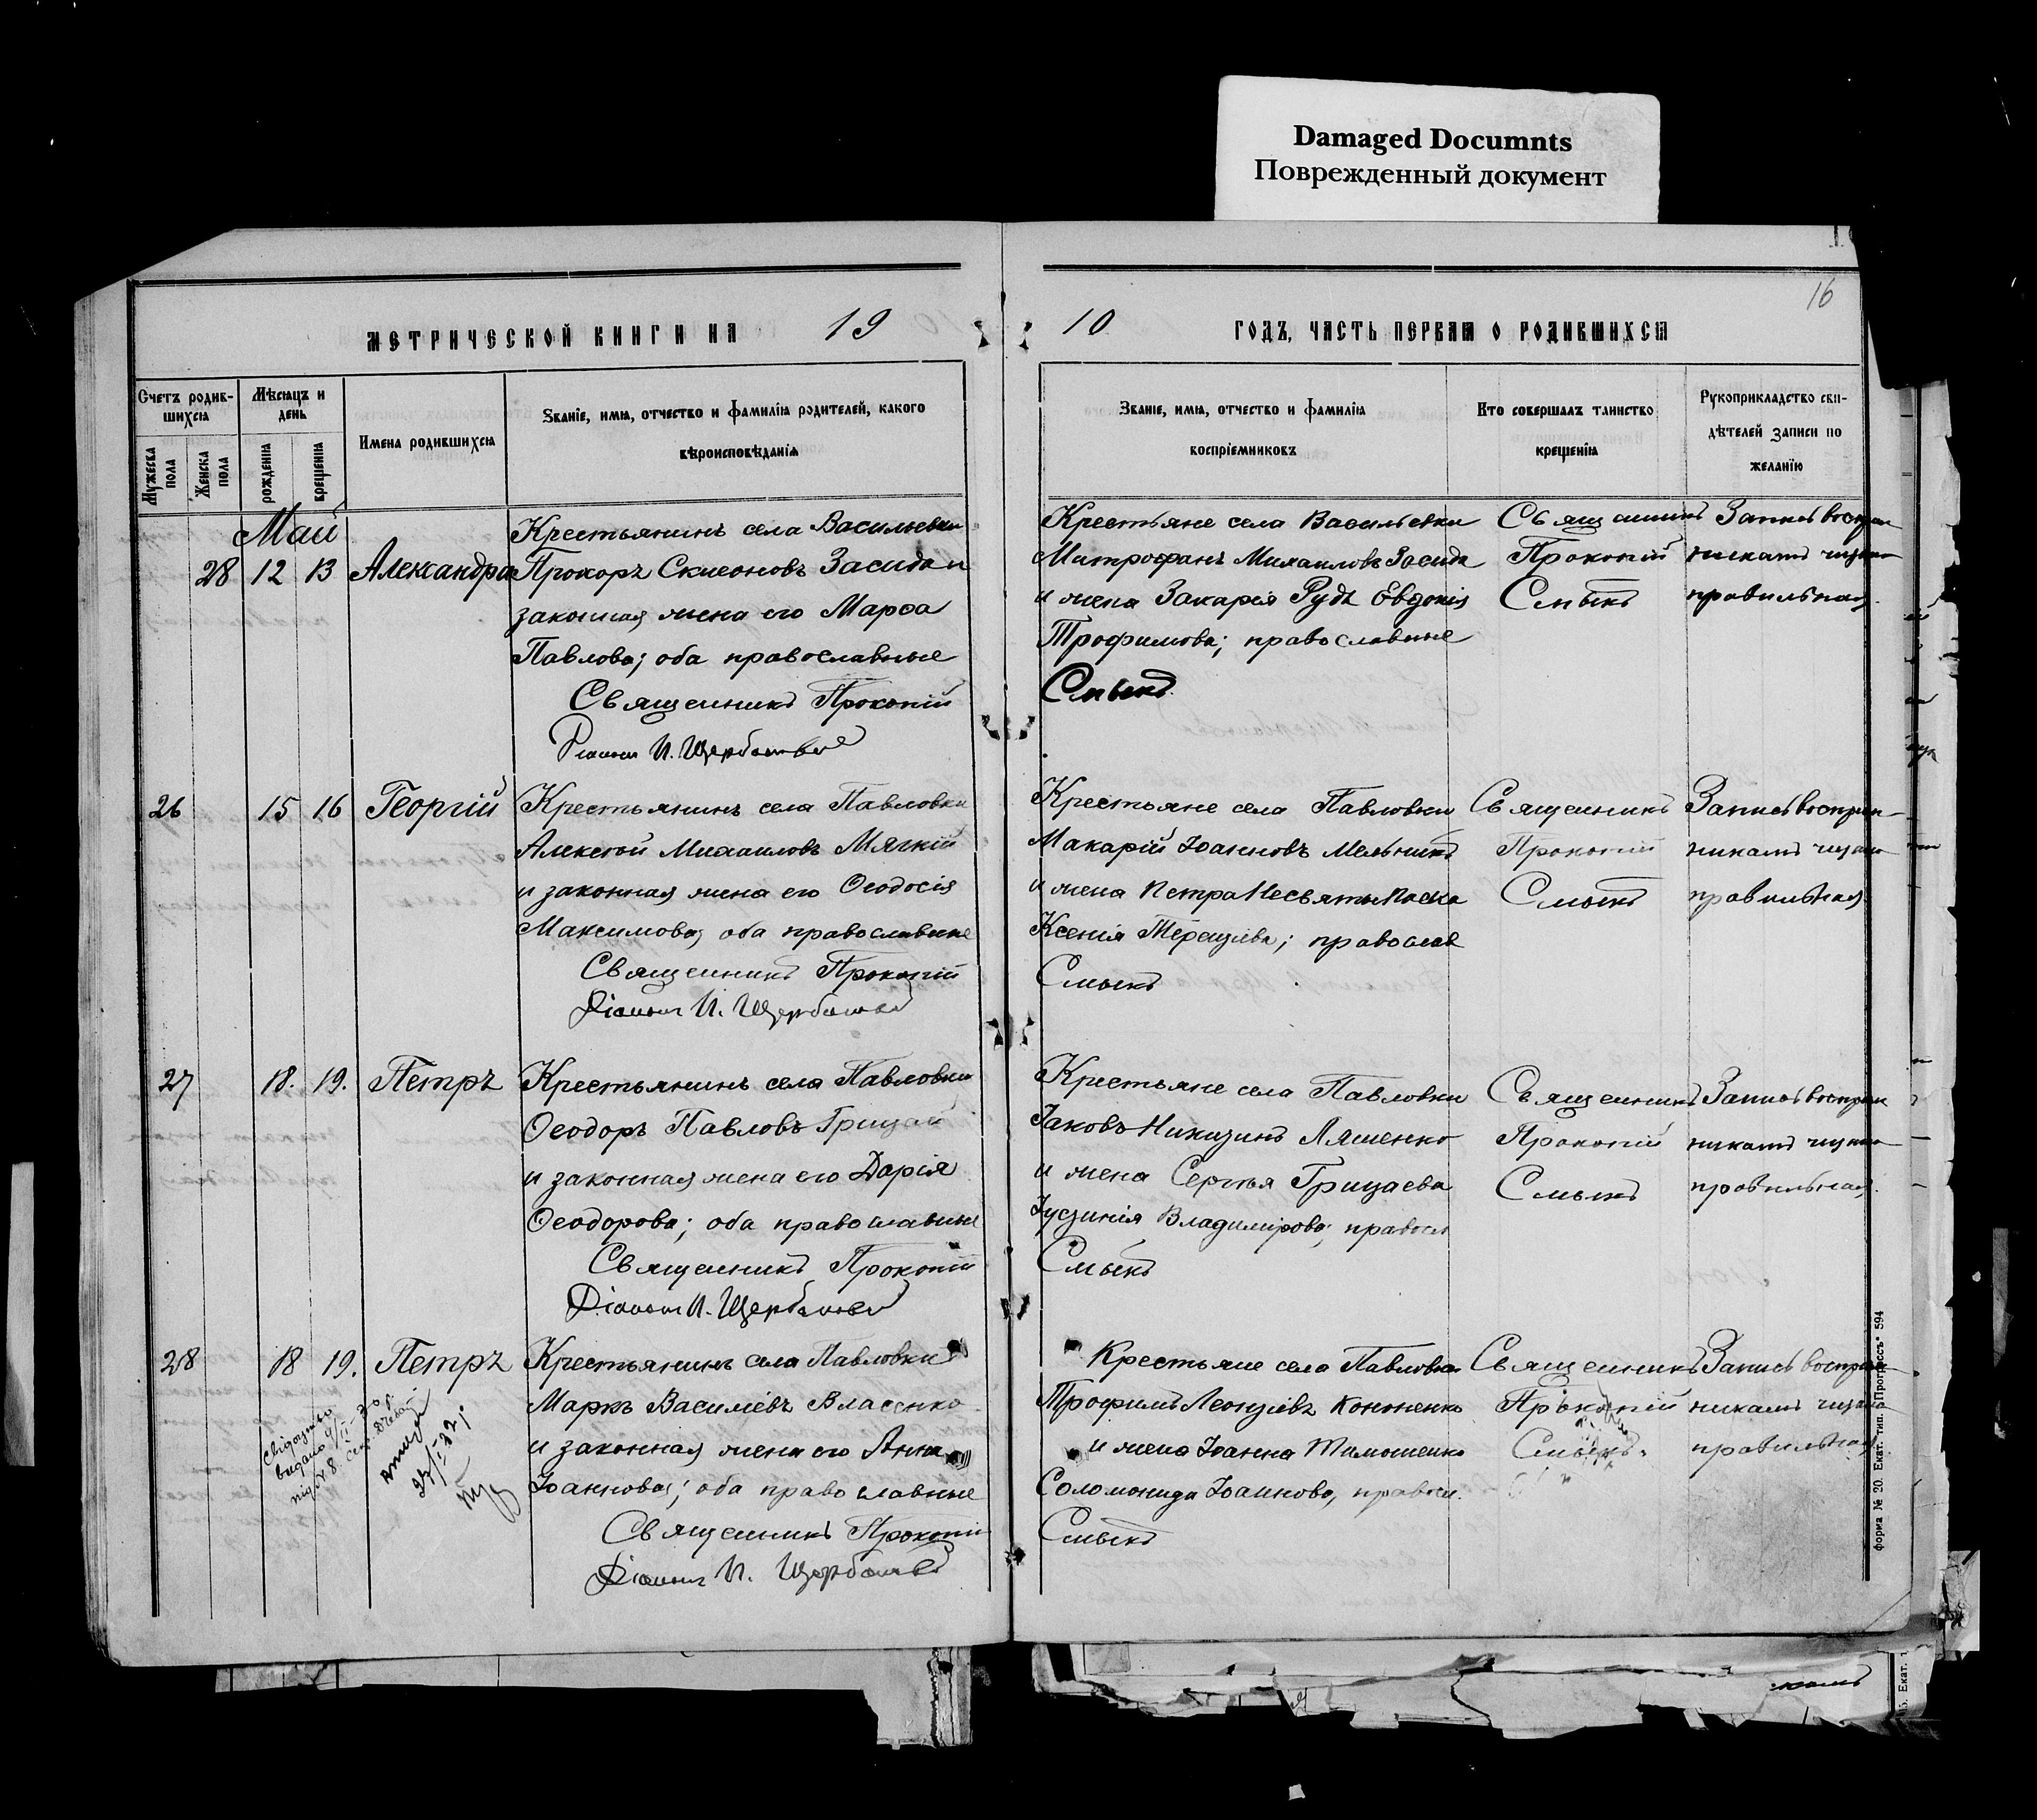 Damaged Documnts
Поврежденный документ
16
МЕТРИЧЕСКОЙ КНИГИ НА 19
10 ГОДЪ, ЧАСТЬ ПЕРВАЯ О РОДИВШИХСЯ
Счетъ родив-
шихся
Мужеска пола
Женска пола
Мѣсяцъ и
день
рожденія
крещенія
Имена родившихся
Званіе, имя, отчество и фамилія родителей, какого
вѣроисповѣданія
Званіе, имя, отчество и фамилія
воспріемниковъ
Кто совершалъ таинство
крещенія
Рукоприкладство сви-
дѣтелей записи по
желанію
Май
28 12 13 Александра
Крестьянинъ села Васильевки
Прохоръ Засида и
законная жена его Марѳа
Павлова; оба православные
Священникъ Прокопій
Діаконъ И.
Крестьяне села Васильевки
Митрофанъ Михаиловъ Засида
и жена Захарія Рудь Евдокія
Трофимова; православные
Смыкъ
Священникъ
Прокопій
Смыкъ
Запись воспріем
никамъ читана
правильная.
26 15 16 Георгій
Крестьянинъ села Павловки
Алексѣй Михаиловъ Мягкій
и законная жена его Ѳеодосія
Максимова; оба православные
Священникъ Прокопій
Діаконъ И.
Крестьяне села Павловки
Макарій Іоанновъ Мельникъ
и жена Петра
Ксенія Терентіева; православ
Смыкъ
Священникъ
Прокопій
Смыкъ
Запись воспріем-
никамъ читана
правильная.
27 18. 19. Петръ
Крестьянинъ села Павловки
Ѳеодоръ Павловъ Грицай
и законная жена его Дарія
Ѳеодорова; оба православные
Священникъ Прокопій
Діаконъ И.
Крестьяне села Павловки
Іаковъ Никитинъ Ляшенко
и жена Сергѣя Грицаева
Іустинія Владимірова; правосл
Смыкъ
Священникъ
Прокопій
Смыкъ
Запись воспріем
никамъ читана
правильная.
28 18 19. Петръ
Крестьянинъ села Павловки
Маркъ Василіевъ Власенко
и законная жена его Анна
Іоаннова; оба православные
Священникъ Прокопій
Діаконъ И.
Крестьяне села Павловки
Трофимъ Леонтіевъ Кононенко
и жена Іоанна Тимошенко
Соломонида Іоаннова, правосл.
Смыкъ
Священникъ
Прокопій
Смыкъ.
Запись воспріем
никамъ читана
правильная
форма № 20. Екат. тип. „Прогрессъ" 594